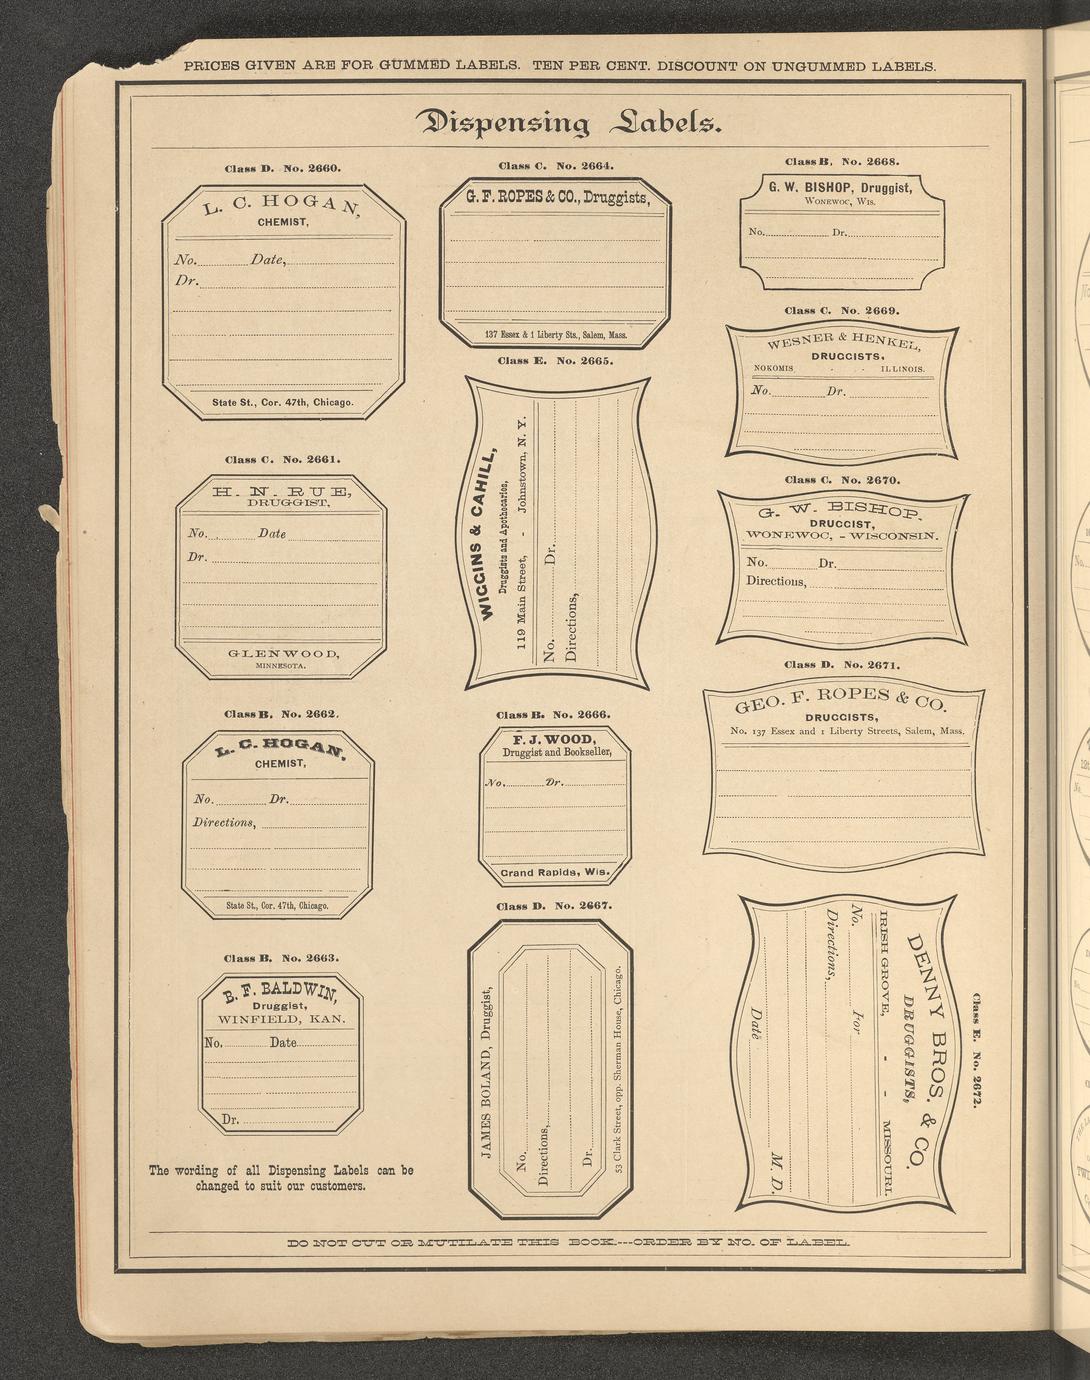 PRICES GIVEN ARE FOR GUMMED LABELS. TEN PER CENT. DISCOUNT ON UNGUMMED LABELS.
Dispensing Labels.
Class D. No. 2660.
L. C. HOGAN,
CHEMIST,
No. Date,
Dr.
State St., Cor. 47th, Chicago.
Class C. No. 2661.
H. N. RUE,
DRUGGIST,
No. Date
Dr.
GLENWOOD,
MINNESOTA.
Class B. No. 2662.
L. C. HOGAN,
CHEMIST,
No. Dr.
Directions,
State St., Cor. 47th, Chicago.
Class B. No. 2663.
B. F. BALDWIN,
Druggist,
WINFIELD, KAN.
No. Date
Dr.
The wording of all Dispensing Labels can be
changed to suit our customers.
Class C. No. 2664.
G. F. ROPES & CO., Druggists,
137 Essex & 1 Liberty Sts., Salem, Mass.
Class E. No. 2665.
WIGGINS & CAHILL,
Druggists and Apothecaries,
119 Main Street, - Johnstown, N. Y.
No. Dr.
Directions,
Class B. No. 2666.
F. J. WOOD,
Druggist and Bookseller,
No. Dr.
Grand Rapids, Wis.
Class D. No. 2667.
JAMES BOLAND, Druggist,
No.
Directions,
Dr.
53 Clark Street, opp. Sherman House, Chicago.
Class B. No. 2668.
G. W. BISHOP, Druggist,
WONEWOC, WIS.
No. Dr.
Class C. No. 2669.
WESNER & HENKEL,
DRUGGISTS,
NOKOMIS - - ILLINOIS.
No. Dr.
Class C. No. 2670.
G. W. BISHOP,
DRUGGIST,
WONEWOC, - WISCONSIN.
No. Dr.
Directions,
Class D. No. 2671.
GEO. F. ROPES & CO.
DRUGGISTS,
No. 137 Essex and 1 Liberty Streets, Salem, Mass.
Class E. No. 2672.
DENNY BROS. & CO.
DRUGGISTS,
IRISH GROVE, - - MISSOURI.
No. For
Directions,
Date M. D.
DO NOT CUT OR MUTILATE THIS BOOK.---ORDER BY NO. OF LABEL.